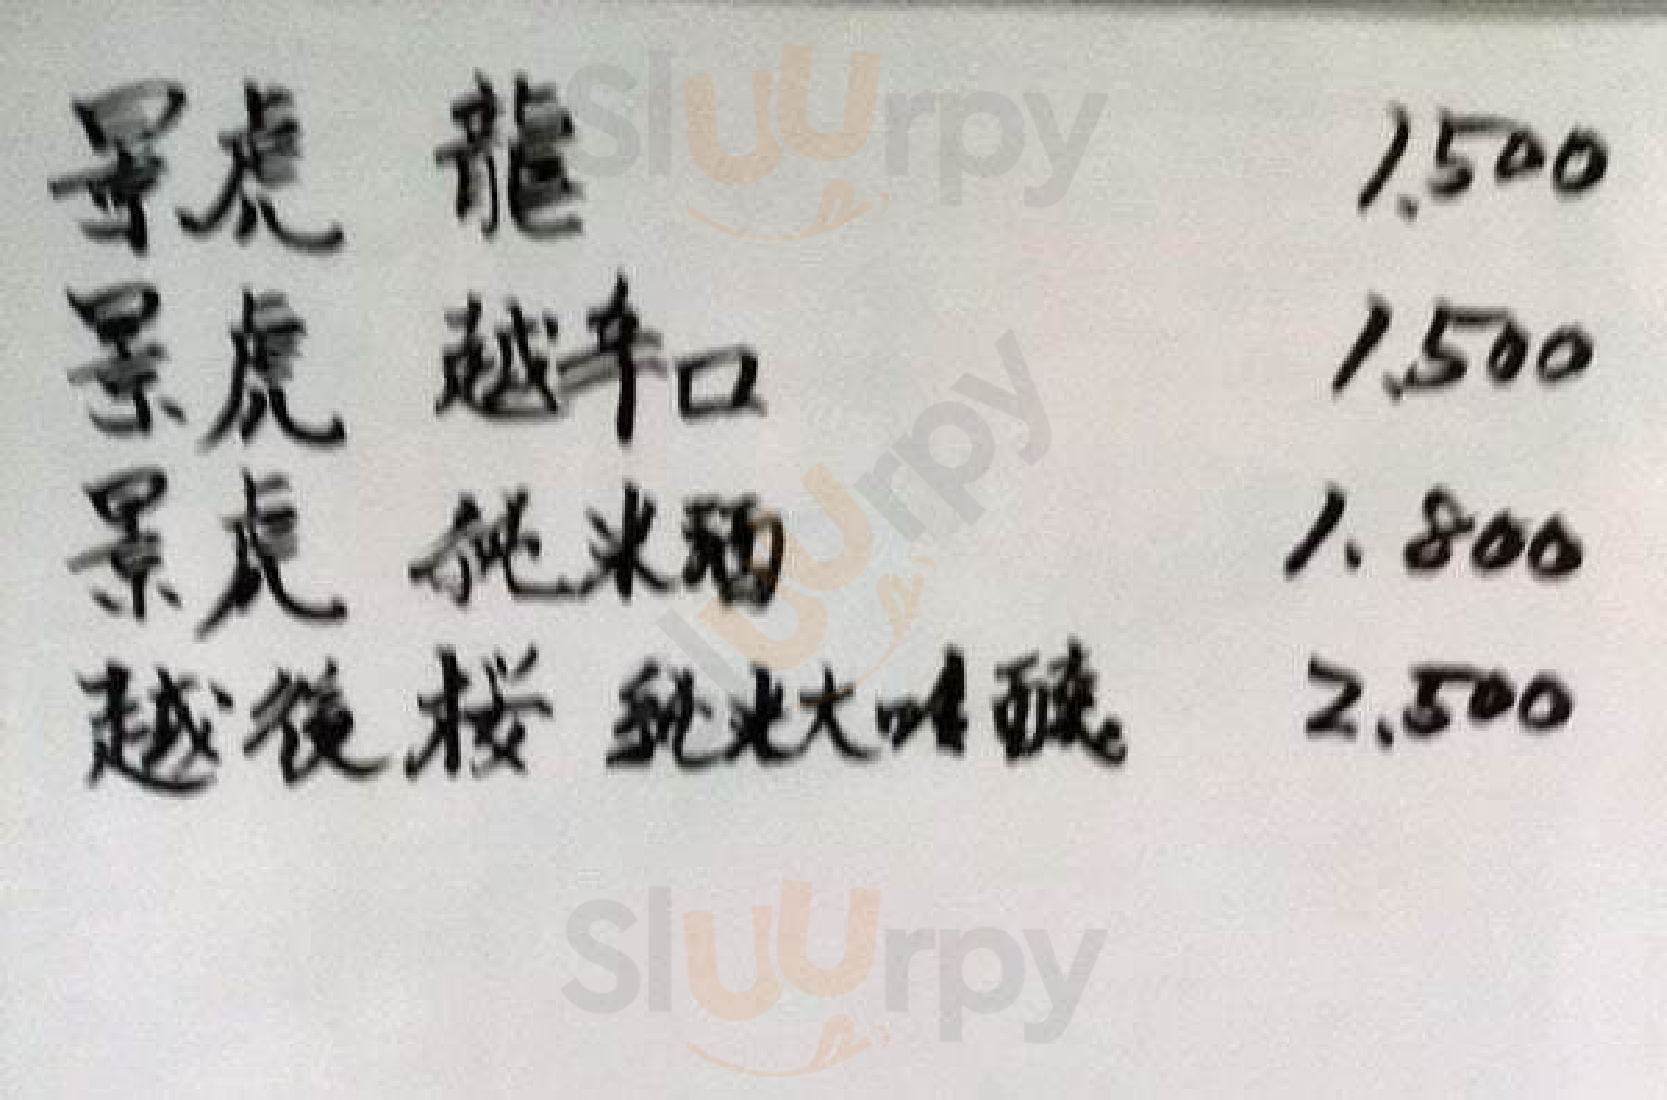 景虎 龍 1,500
景虎 越辛口 1,500
景虎 純米酒 1.800
越後桜 純米大吟醸 2,500
Sluurpy
Sluurpy
Sluurpy